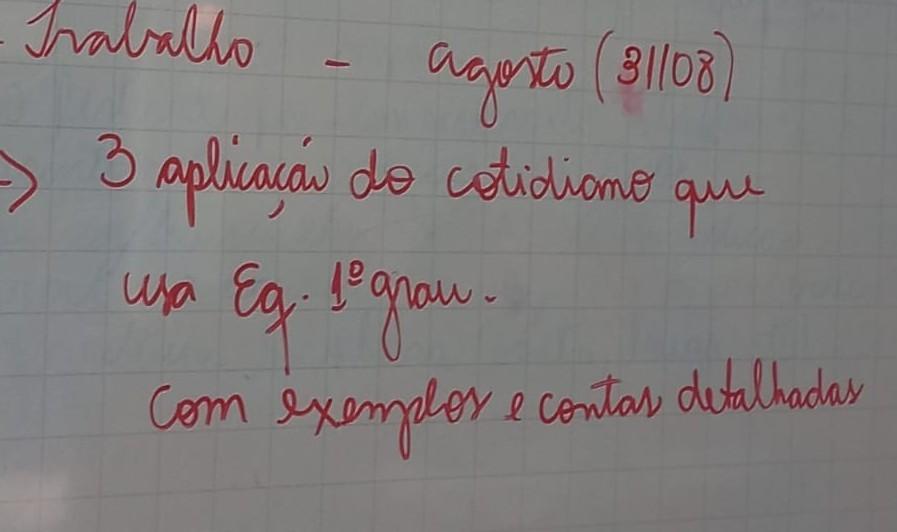 - Trabalho - agosto (31/08)
-> 3 aplicação do cotidiano que
usa Eq. 1º grau.
Com exemplos e contas detalhadas